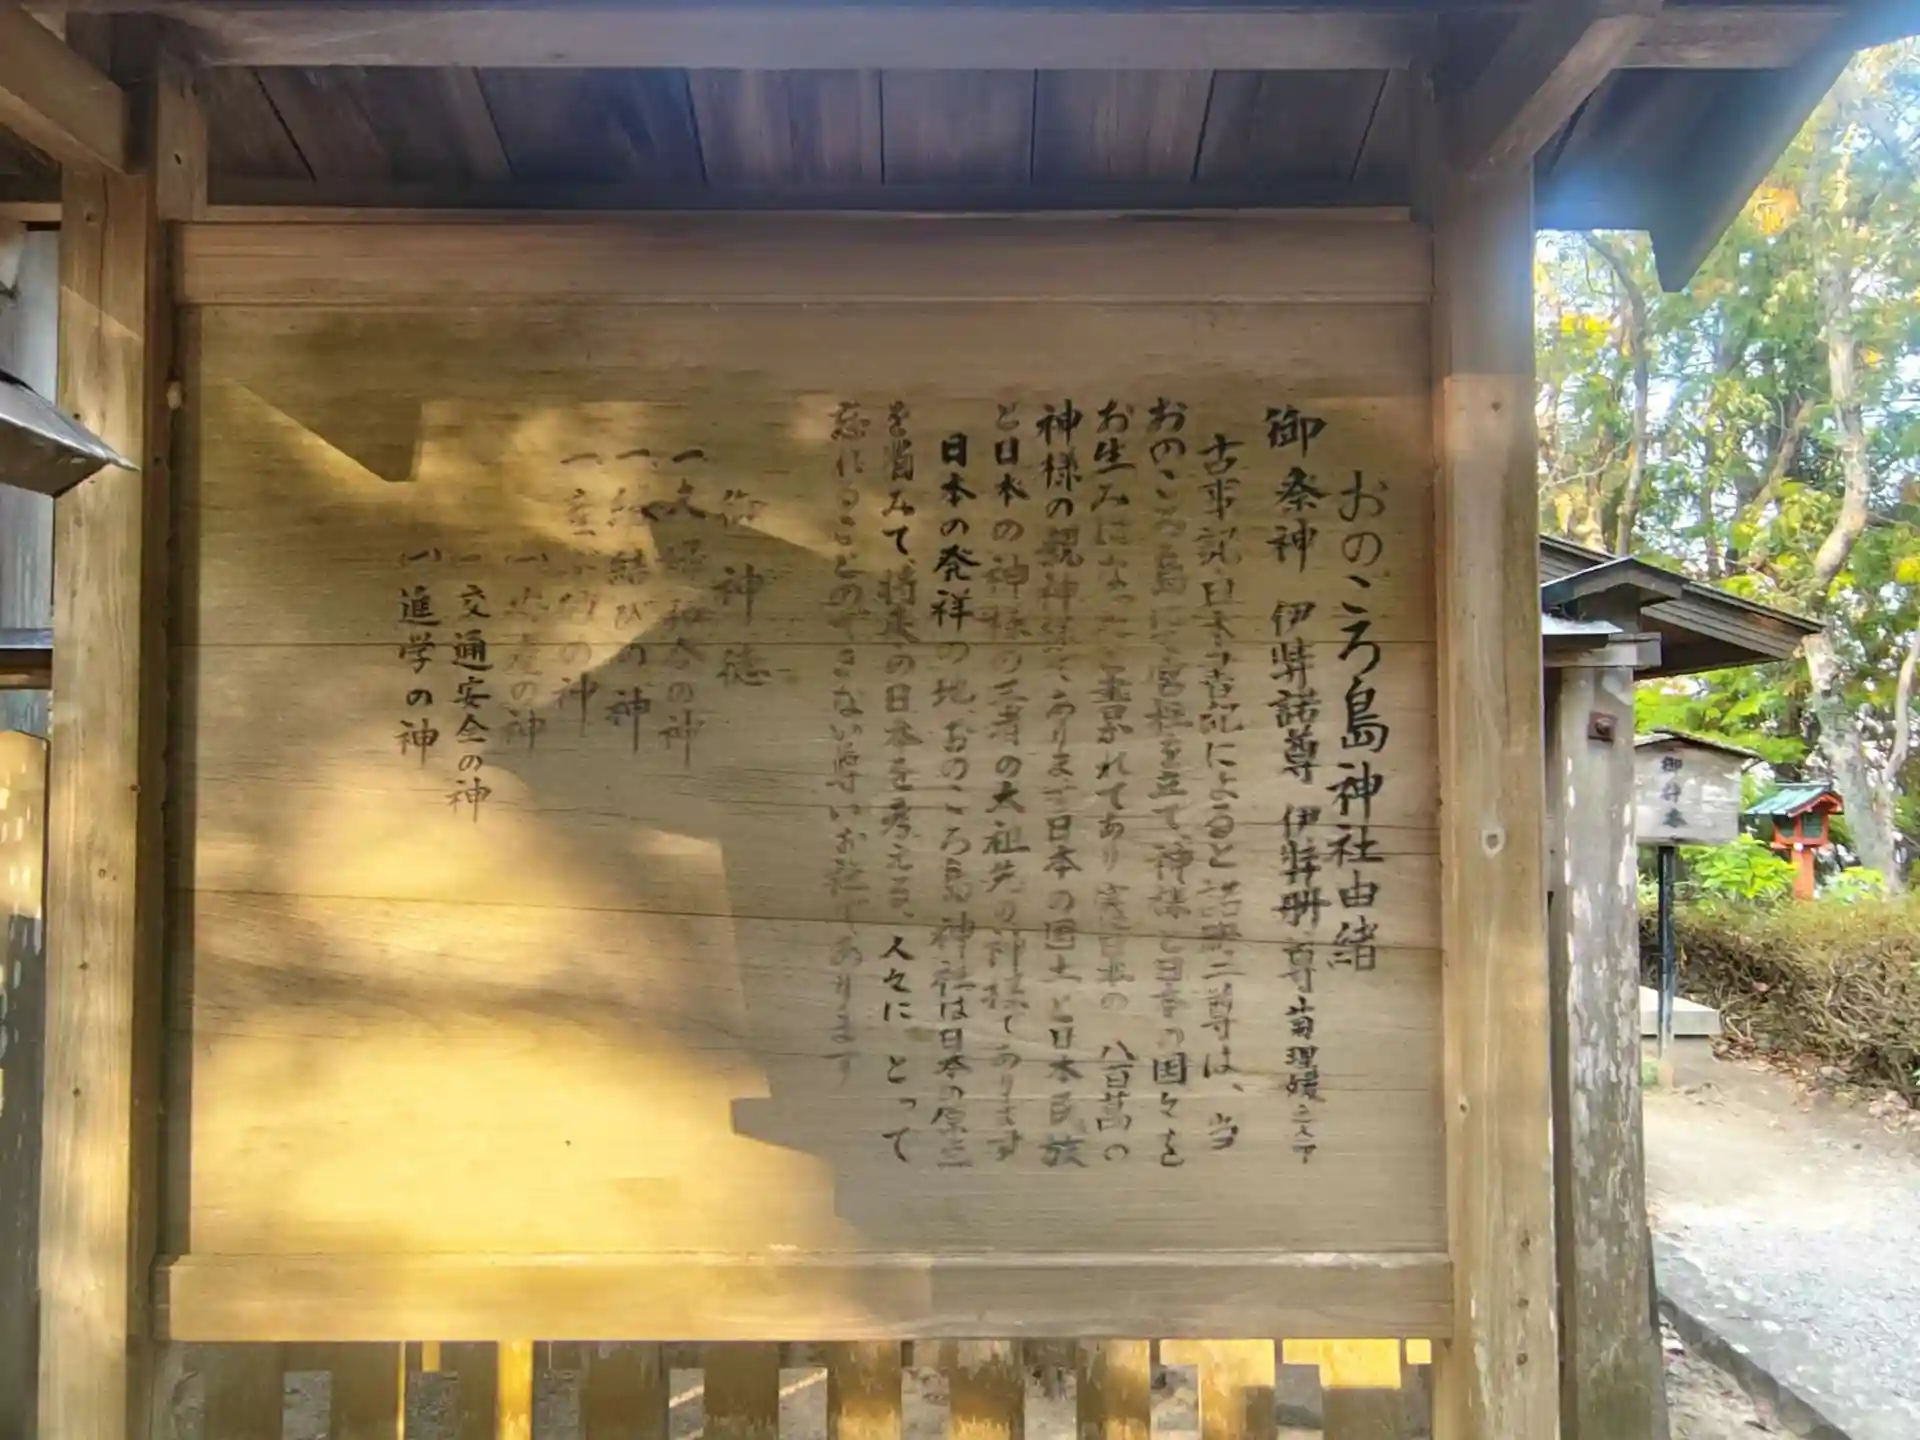 おのころ島神社由緒
御祭神 伊弉諾尊 伊弉冊尊 菊理媛之命
古事記日本書紀によると諾冊二尊は、当
おのころ島にて宮柱を立て、神議と日本の国々を
お生みになったと書かれてあり実に日本の 八百萬の
神様の親神様であります日本の国土と日本民族
と日本の神様の三者の大祖先の神様であります
日本の発祥の地、おのころ島神社は日本の原点
を省みて、将来の日本を考える、人々に とって
忘れることのできない尊いお社であります
御神徳
一、夫婦和合の神
一、縁結びの神
一、産 の神
(一) 安産の神
一 交通安全の神
(一) 進学の神
御神木